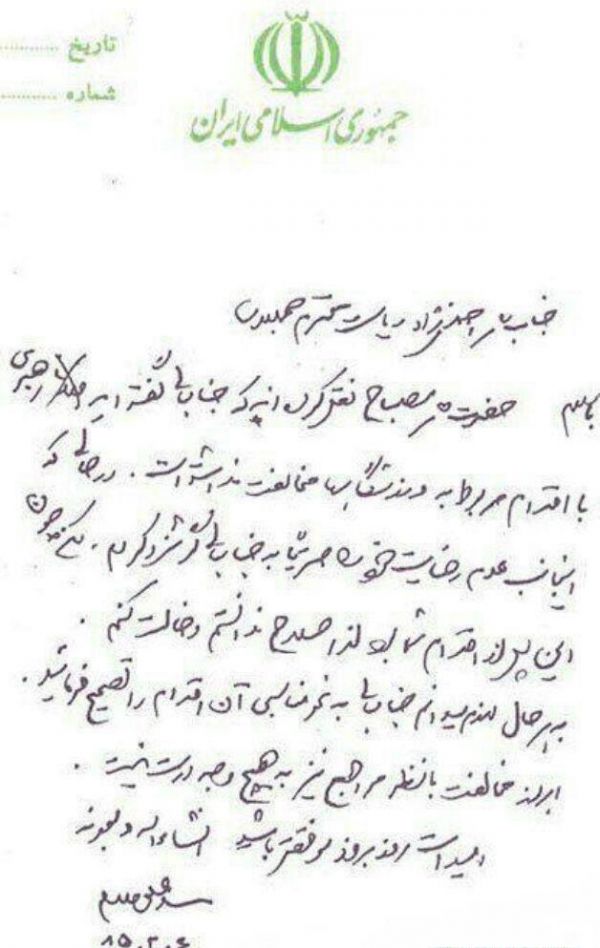 تاریخ ..........
شماره ..........
جمهوری اسلامی ایران
جناب آقای احمدی‌نژاد ریاست محترم جمهوری
با سلام حضرت آقای مصباح نقل کردند که جنابعالی گفته‌اید رهبری
با اقدام مربوط به ورزشگاه‌ها مخالفت نداشته است. در حالی که
اینجانب عدم رضایت خود را صریحاً به جنابعالی گوشزد کردم. لکن چون
این پس از اقدام شما بود لذا صلاح ندانستم دخالت کنم.
به هر حال لازم میدانم جنابعالی به نحو مناسبی آن اقدام را تصحیح فرمائید.
ابراز مخالفت با نظر مراجع نیز به هیچ وجه درست نیست.
امید است روز بروز موفقتر باشید انشاءالله
سید علی